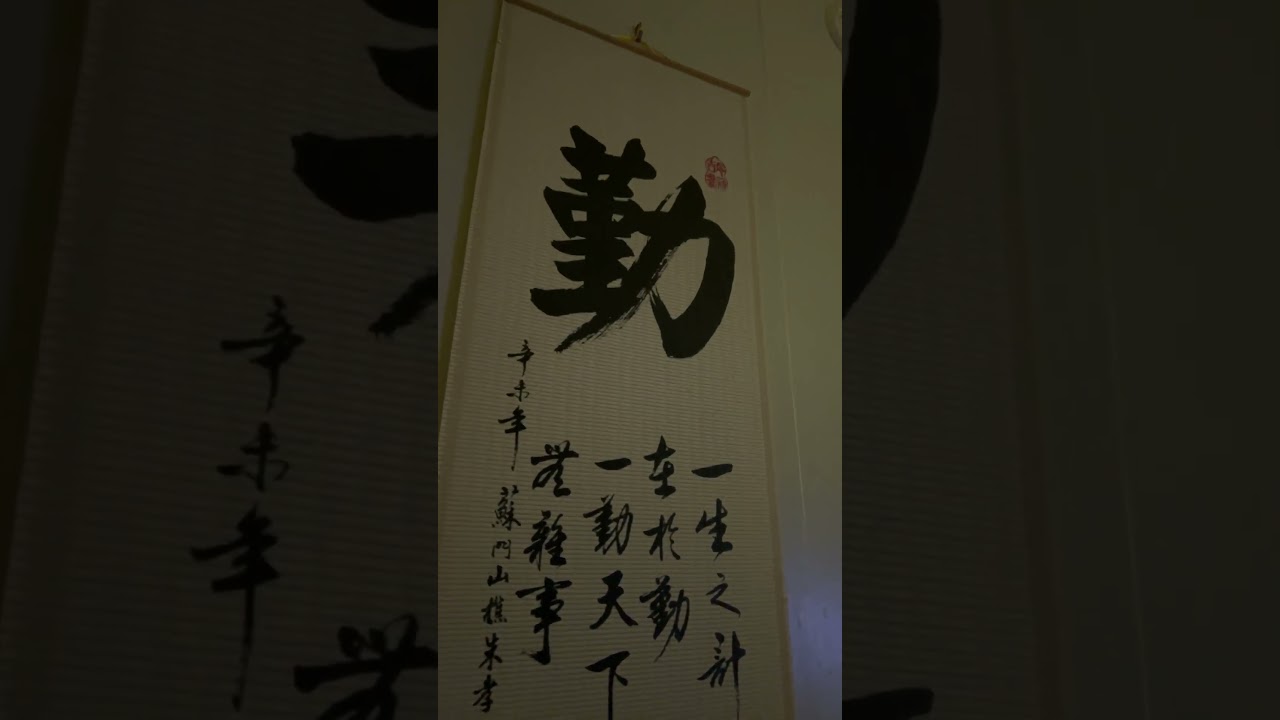 勤
一生之計
在於勤
一勤天下
無難事
辛未年
蘇門山樵朱孝